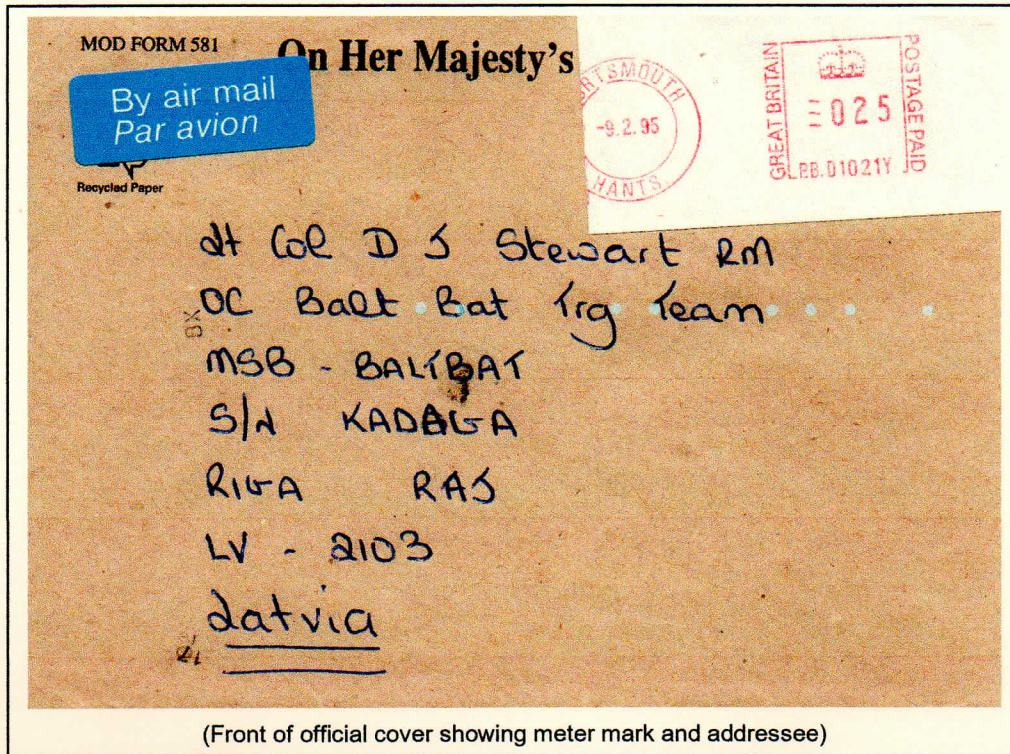 MOD FORM 581
On Her Majesty's
By air mail
Par avion
Recycled Paper
PORTSMOUTH
-9.2.95
HANTS
GREAT BRITAIN
POSTAGE PAID
025
P.B.D1021Y
Lt Col D J Stewart RM
OC Balt Bat Trg Team
MSB - BALTBAT
S/N KADAGA
RIGA RAJ
LV - 2103
Latvia
(Front of official cover showing meter mark and addressee)